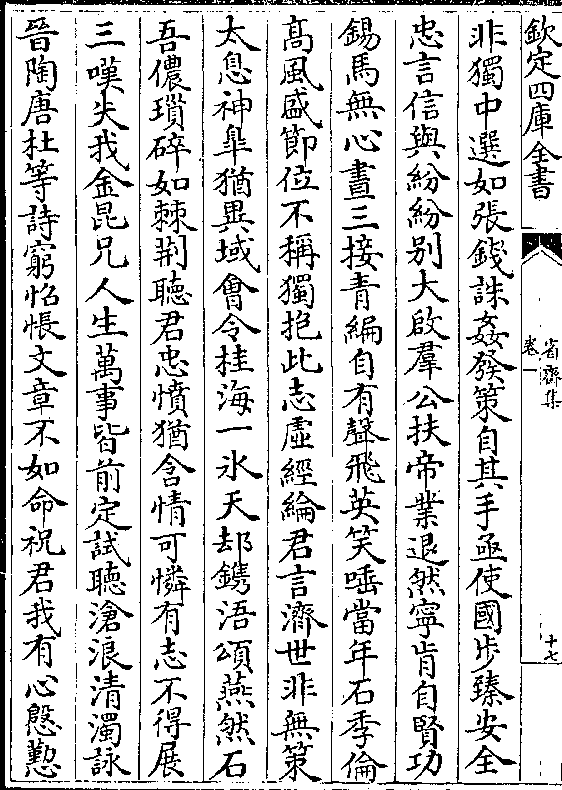 欽定四庫全書
省齋集
卷一
十七
非獨中選如張錢誅姦發策自其手亟使國步臻安全
忠言信與紛紛别大啟羣公扶帝業退然寧肯自賢功
錫馬無心晝三接青編自有聲飛英笑唾當年石季倫
高風盛節位不稱獨抱此志虛經綸君言濟世非無策
太息神臯猶異域會令桂海一氷天却鐫浯頌燕然石
吾儂瑣碎如棘荆聽君忠憤猶含情可憐有志不得展
三嘆失我金昆兄人生萬事皆前定試聽滄浪清濁詠
晉陶唐杜等詩窮怊悵文章不如命祝君我有心慇懃